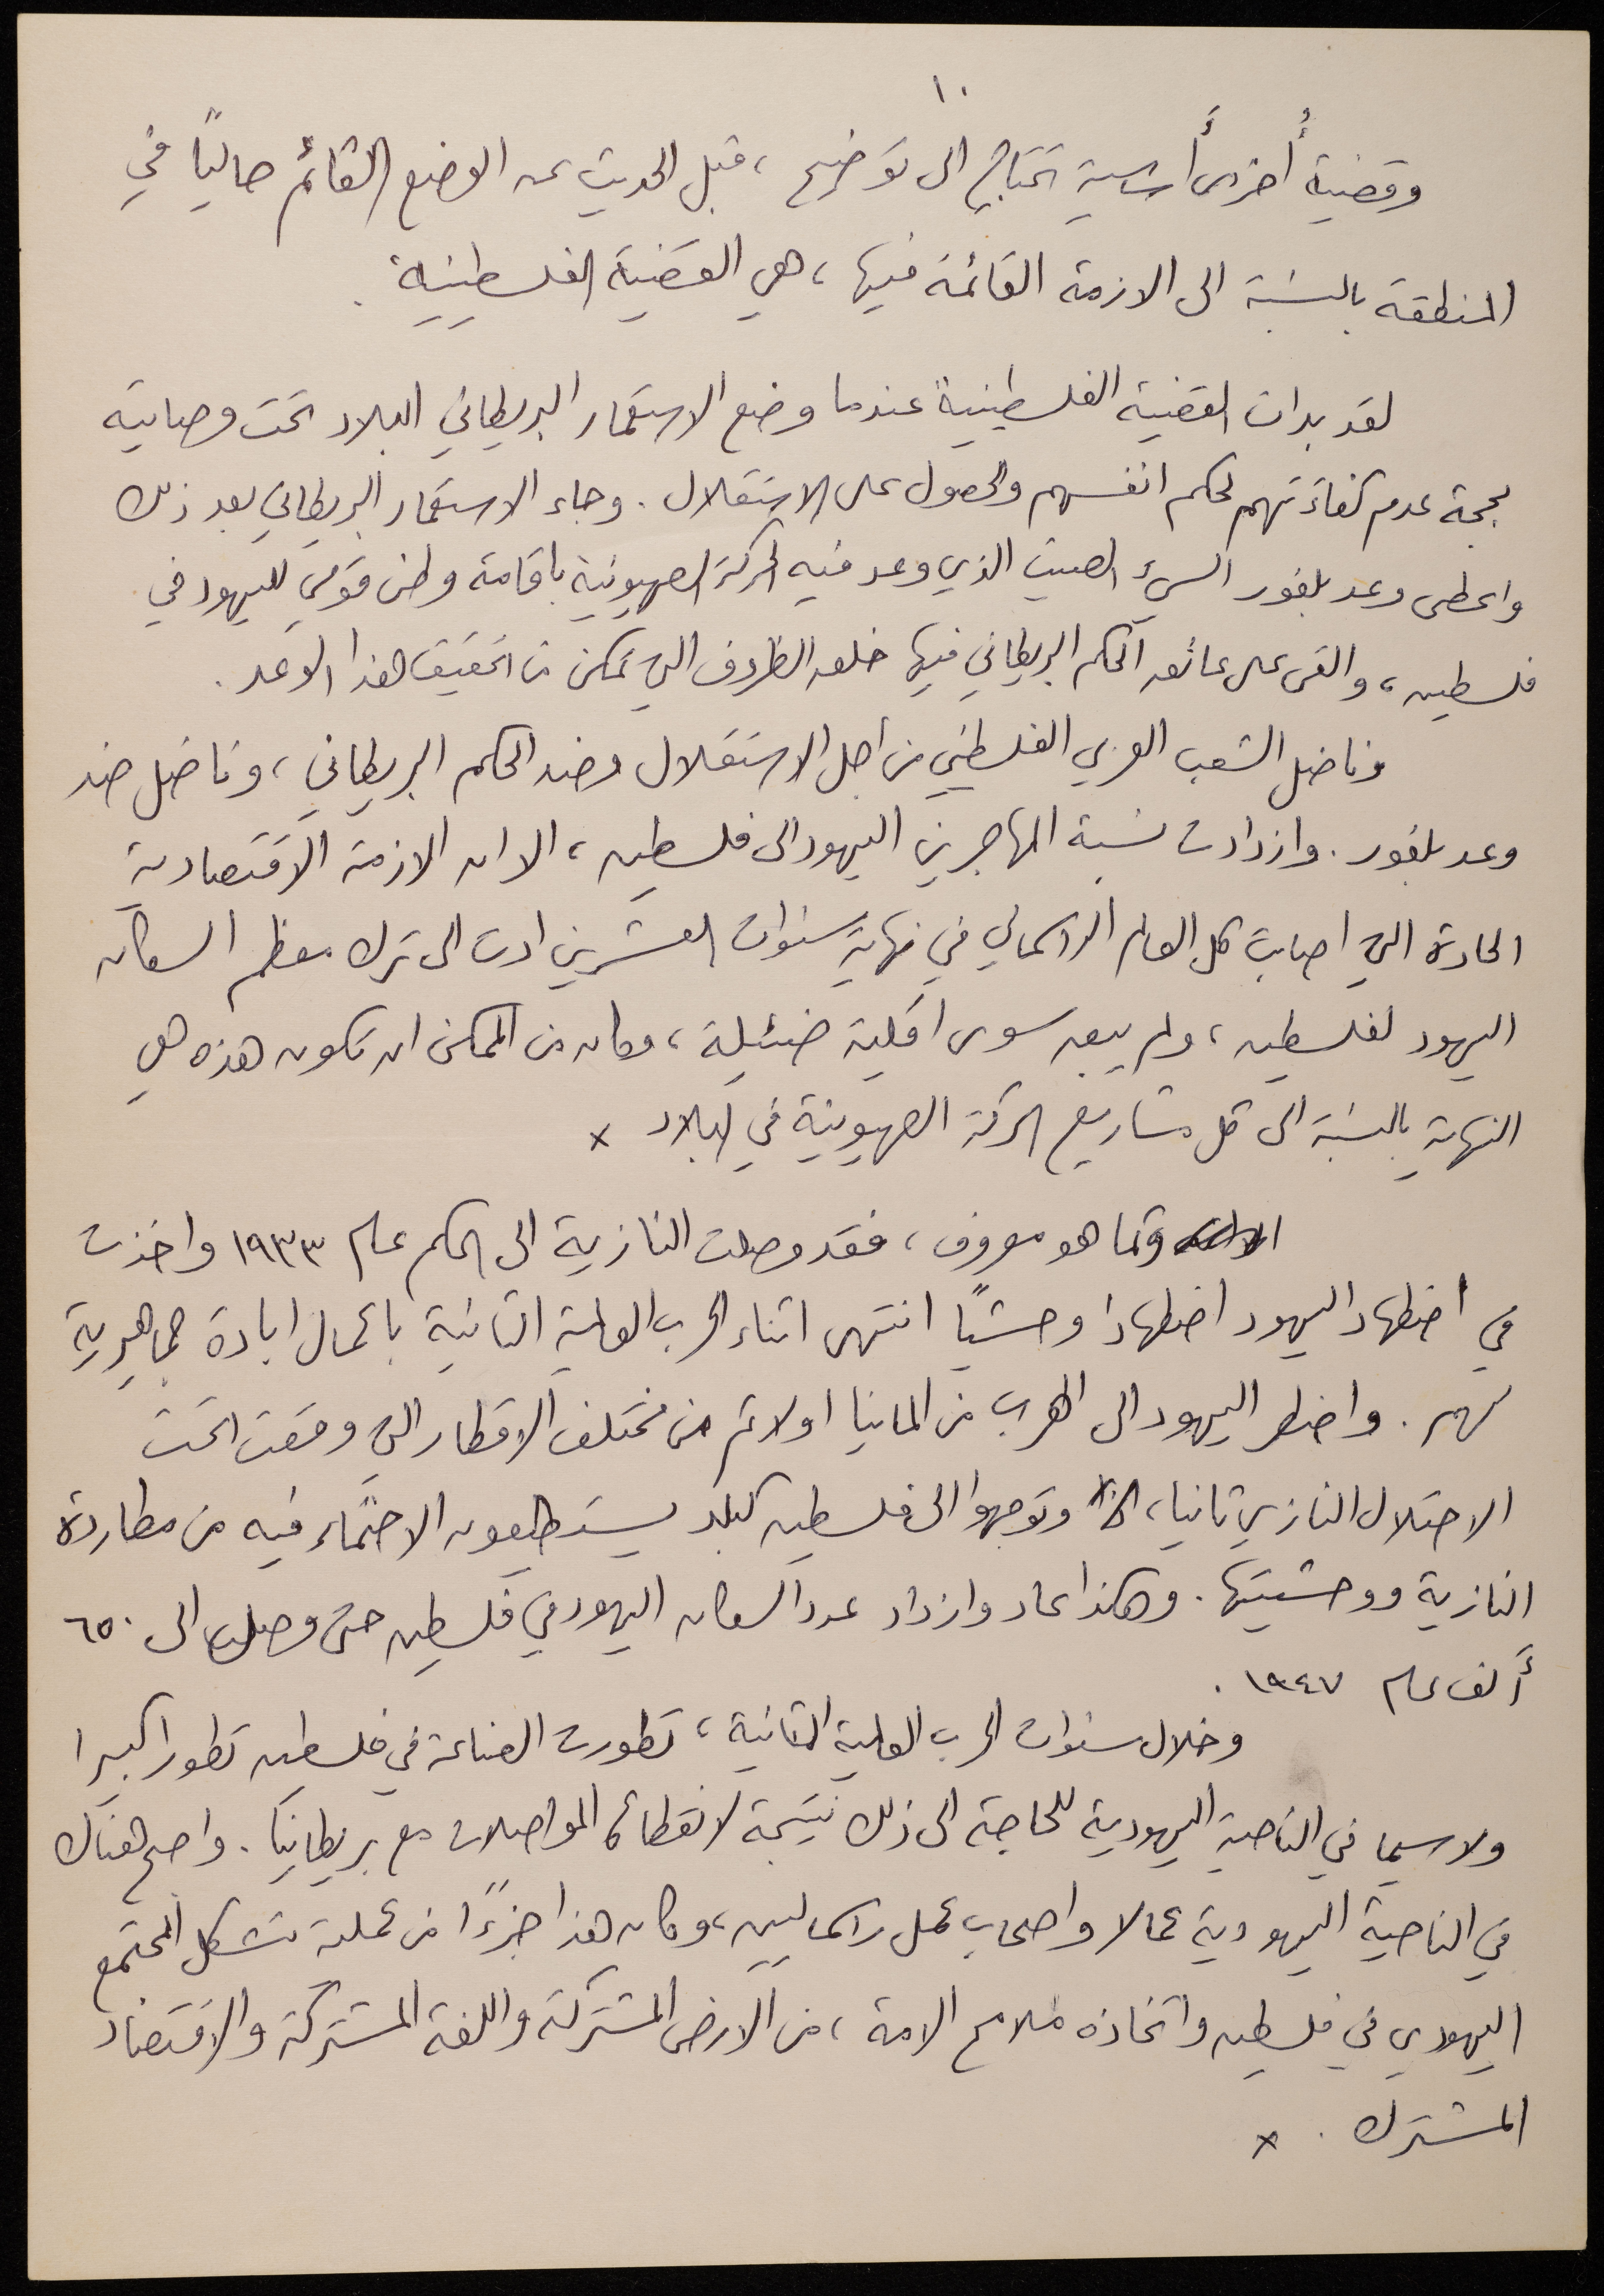 ١٠
وقضية أُخرى أَساسية تحتاج الى توضيح ، قبل الحديث عن الوضع القائم حالياً في
المنطقة بالنسبة الى الازمة القائمة فيها ، هي القضية الفلسطينية .
لقد بدات القضية الفلسطينية عندما وضع الاستعمار البريطاني البلاد تحت وصايته
بحجة عدم كفاءتهم لحكم انفسهم والحصول على الاستقلال . وجاء الاستعمار البريطاني بعد ذلك
واعطى وعد بلفور السيء الصيت الذي وعد فيه الحركة الصهيونية باقامة وطن قومي لليهود في
فلسطين ، والقى على عاتق الحكم البريطاني فيها خلق الظروف التي تمكن من تحقيق هذا الوعد .
وناضل الشعب العربي الفلسطيني من اجل الاستقلال وضد الحكم البريطاني ، وناضل ضد
وعد بلفور . وازدادت نسبة المهاجرين اليهود الى فلسطين ، الا ان الازمة الاقتصادية
الحادة التي اصابت كل العالم الراسمالي في نهاية سنوات العشرين ادت الى ترك معظم السكان
اليهود لفلسطين ، ولم يبق سوى اقلية ضئيلة ، وكان من الممكن ان تكون هذه هي
النهاية بالنسبة الى كل مشاريع الحركة الصهيونية في البلاد x
وكما هو معروف ، فقد وصلت النازية الى الحكم عام ١٩٣٣ واخذت
في اضطهاد اليهود اضطهادا وحشيًا انتهى اثناء الحرب العالمية الثانية باعمال ابادة جماهيرية
لهم . واضطر اليهود الى الهرب من المانيا اولا ثم من مختلف الاقطار التي وقعت تحت
الاحتلال النازي ثانيا ، وتوجهوا الى فلسطين كبلد يستطيعون الاحتماء فيه من مطاردة
النازية ووحشيتها . وهكذا عاد وازداد عدد السكان اليهود في فلسطين حتى وصل الى ٦٥٠
أَلف عام ١٩٤٧ .
وخلال سنوات الحرب العالمية الثانية ، تطورت الصناعة في فلسطين تطورا كبيرا
ولا سيما في الناحية اليهودية للحاجة الى ذلك نتيجة لانقطاع المواصلات مع بريطانيا . واصبح هناك
في الناحية اليهودية عمالا واصحاب عمل راسماليين ، وكان هذا جزءًا من عملية تشكل المجتمع
اليهودي في فلسطين واتخاذه ملامح الامة ، من الارض المشتركة واللغة المشتركة والاقتصاد
المشترك . x